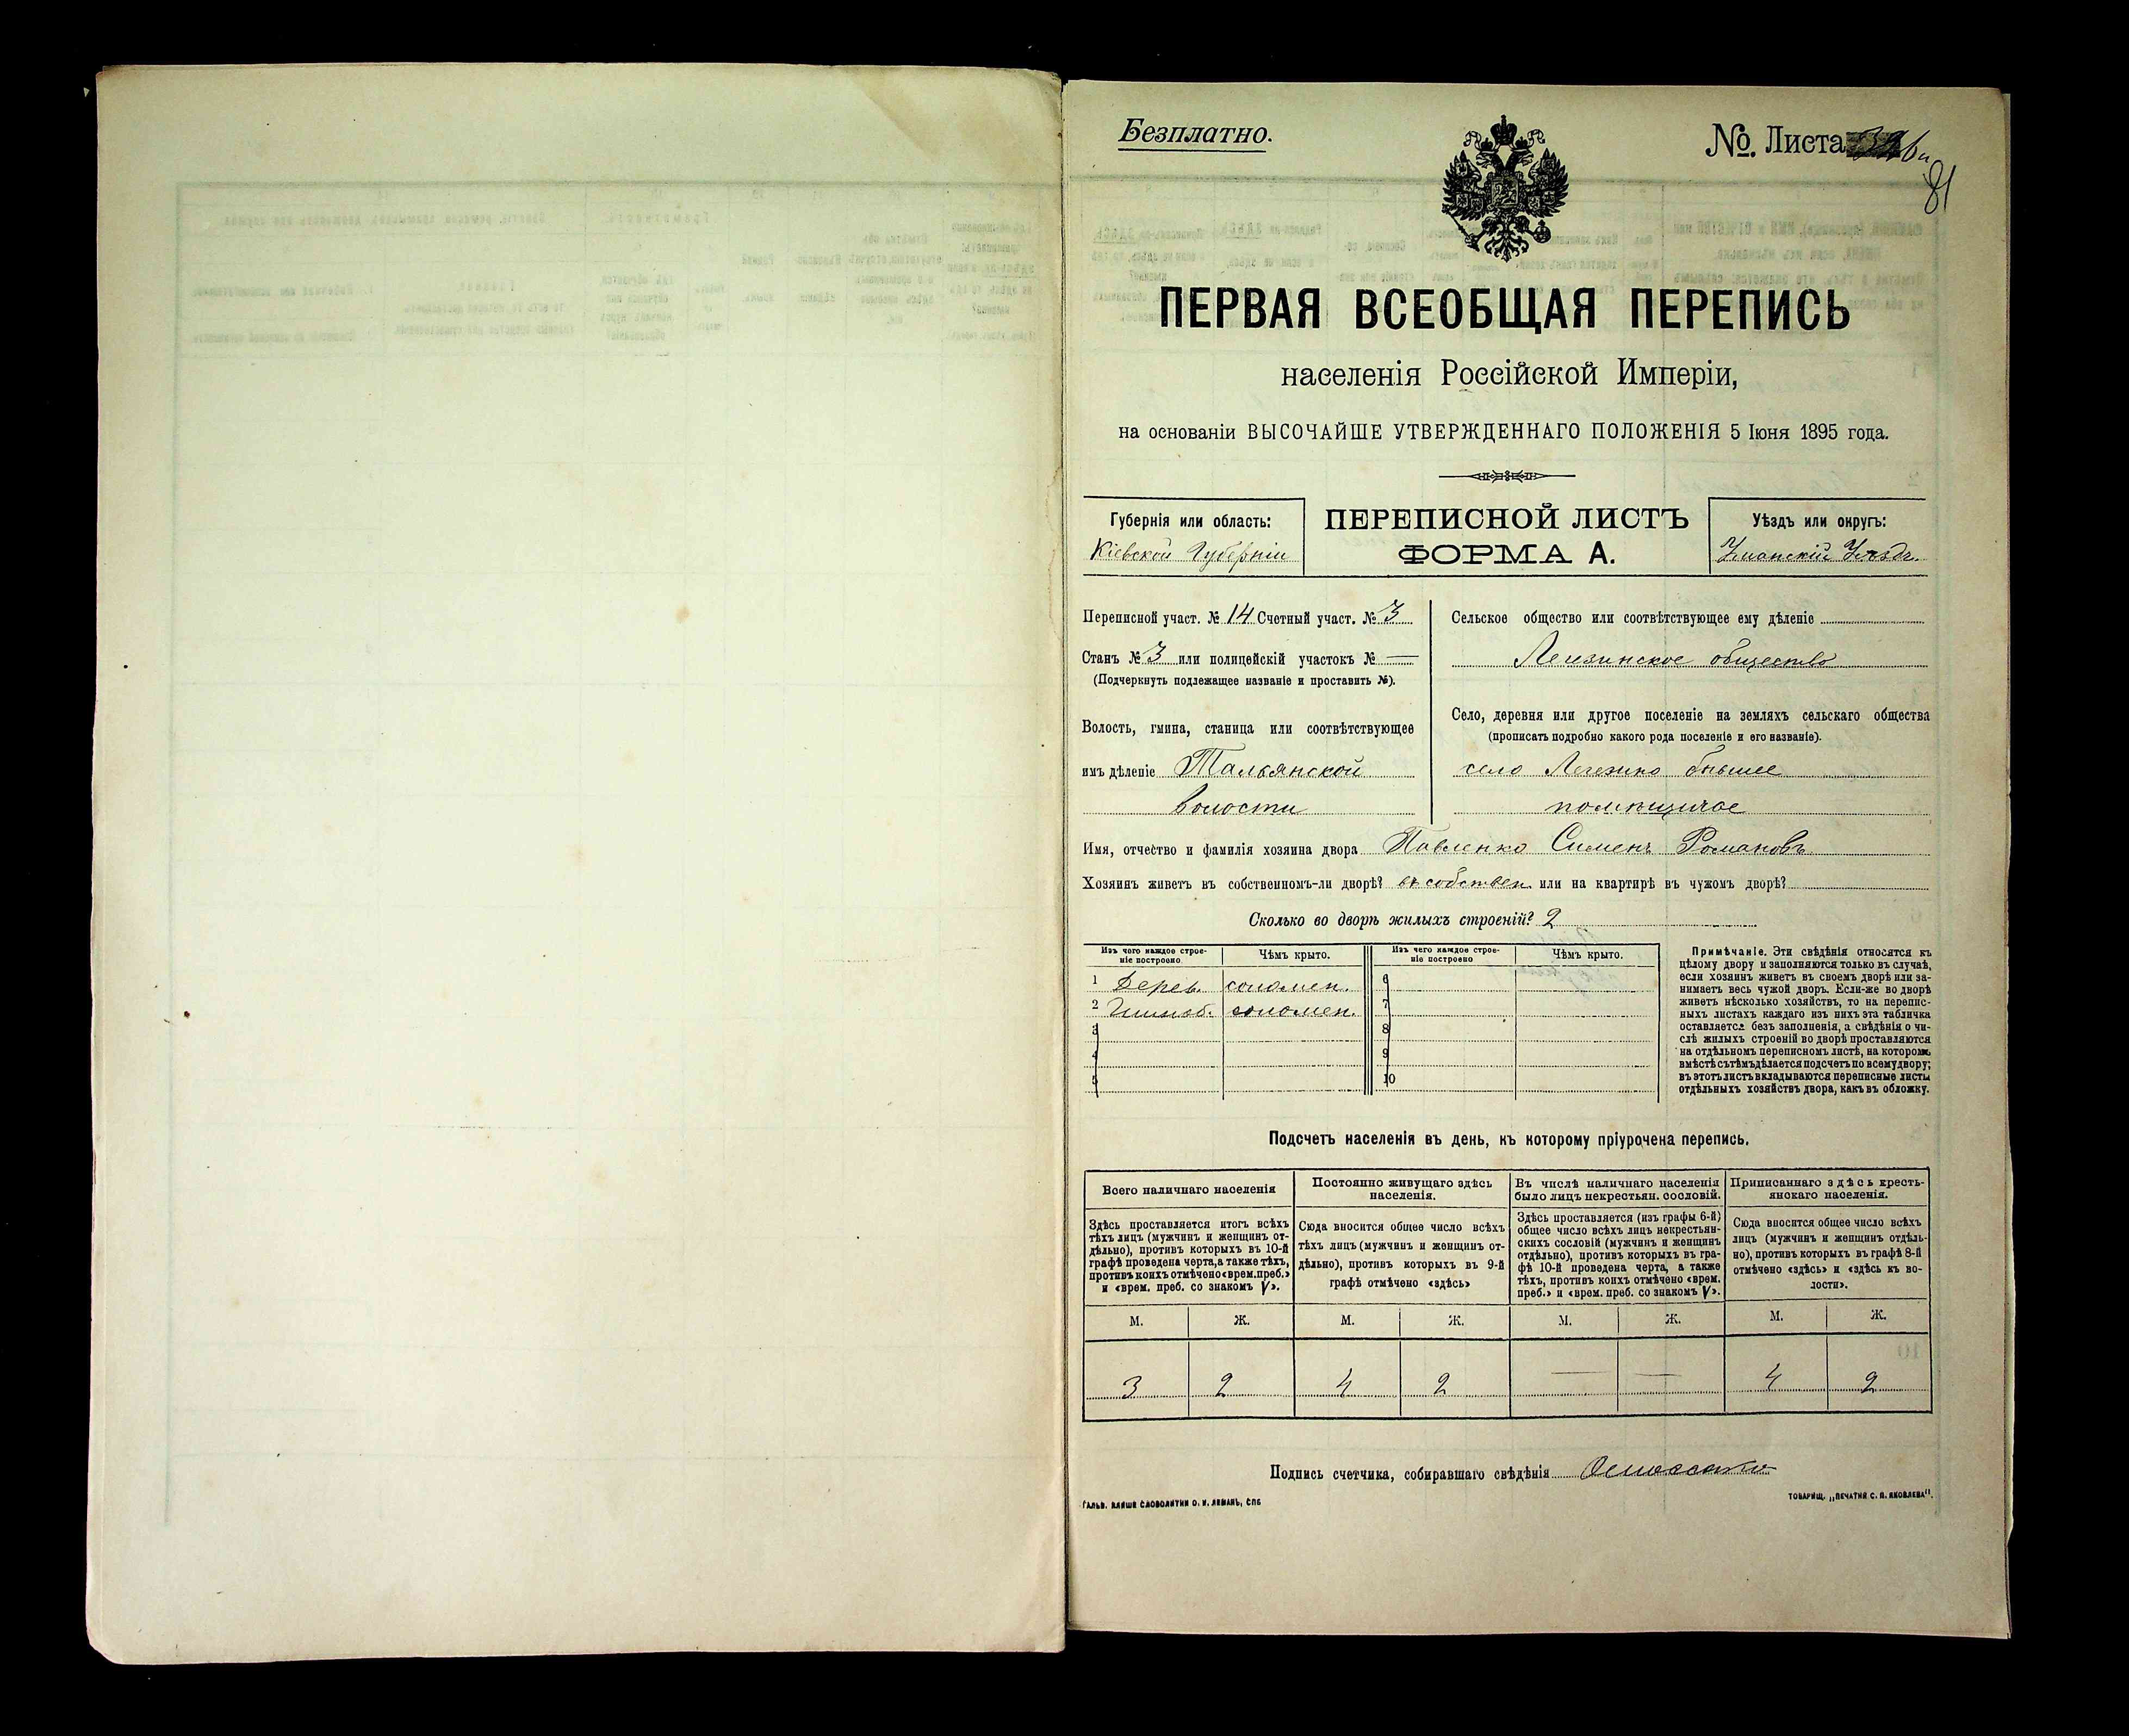 Безплатно.
№ Листа
81
ПЕРВАЯ ВСЕОБЩАЯ ПЕРЕПИСЬ
населенія Россійской Имперіи,
на основаніи ВЫСОЧАЙШЕ УТВЕРЖДЕННАГО ПОЛОЖЕНІЯ 5 Іюня 1895 года.
Губернія или область:
Кіевской Губерніи
ПЕРЕПИСНОЙ ЛИСТЪ
ФОРМА А.
Уѣздъ или округъ:
Уманскій Уѣздъ
Переписной участ. № 14 Счетный участ. № 3
Станъ № 3 или полицейскій участокъ № —
(Подчеркнуть подлежащее названіе и проставить №).
Волость, гмина, станица или соотвѣтствующее
имъ дѣленіе Тальянской
волости
Сельское общество или соотвѣтствующее ему дѣленіе
общество
Село, деревня или другое поселеніе на земляхъ сельскаго общества
(прописать подробно какого рода поселеніе и его названіе).
село Легезино бывшее
помѣщичье
Имя, отчество и фамилія хозяина двора Павленко Сименъ Романовъ
Хозяинъ живетъ въ собственномъ-ли дворѣ? въ собствен. или на квартирѣ въ чужомъ дворѣ?
Сколько во дворѣ жилыхъ строеній? 2
Изъ чего каждое строе-
ніе построено
Чѣмъ крыто.
Изъ чего каждое строе-
ніе построено
Чѣмъ крыто.
1 Дерев. соломен. 6
2 соломен. 7
3 8
4 9
5 10
Примѣчаніе. Эти свѣдѣнія относятся къ
цѣлому двору и заполняются только въ случаѣ,
если хозяинъ живетъ въ своемъ дворѣ или за-
нимаетъ весь чужой дворъ. Если-же во дворѣ
живетъ нѣсколько хозяйствъ, то на перепис-
ныхъ листахъ каждаго изъ нихъ эта табличка
оставляется безъ заполненія, а свѣдѣнія о чи-
слѣ жилыхъ строеній во дворѣ проставляются
на отдѣльномъ переписномъ листѣ, на которомъ
вмѣстѣ съ тѣмъ дѣлается подсчетъ по всему двору;
въ этотъ листъ вкладываются переписные листы
отдѣльныхъ хозяйствъ двора, какъ въ обложку.
Подсчетъ населенія въ день, къ которому пріурочена перепись.
Всего наличнаго населенія
Здѣсь проставляется итогъ всѣхъ
тѣхъ лицъ (мужчинъ и женщинъ от-
дѣльно), противъ которыхъ въ 10-й
графѣ проведена черта, а также тѣхъ,
противъ коихъ отмѣчено «врем. преб.»
и «врем. преб. со знакомъ V».
Постоянно живущаго здѣсь
населенія.
Сюда вносится общее число всѣхъ
тѣхъ лицъ (мужчинъ и женщинъ от-
дѣльно), противъ которыхъ въ 9-й
графѣ отмѣчено «здѣсь»
Въ числѣ наличнаго населенія
было лицъ некрестьян. сословій.
Здѣсь проставляется (изъ графы 6-й)
общее число всѣхъ лицъ некрестьян-
скихъ сословій (мужчинъ и женщинъ
отдѣльно), противъ которыхъ въ гра-
фѣ 10-й проведена черта, а также
тѣхъ, противъ коихъ отмѣчено «врем.
преб.» и «врем. преб. со знакомъ V».
Приписаннаго здѣсь кресть-
янскаго населенія.
Сюда вносится общее число всѣхъ
лицъ (мужчинъ и женщинъ отдѣль-
но), противъ которыхъ въ графѣ 8-й
отмѣчено «здѣсь» и «здѣсь къ во-
лости».
М. Ж. М. Ж. М. Ж. М. Ж.
3 2 4 2 — — 4 2
Подпись счетчика, собиравшаго свѣдѣнія
ГАЛЬВ. КЛИШЕ СЛОВОЛИТНИ О. И. ЛЕМАНЪ, СПБ
ТОВАРИЩ. „ПЕЧАТНЯ С. П. ЯКОВЛЕВА".